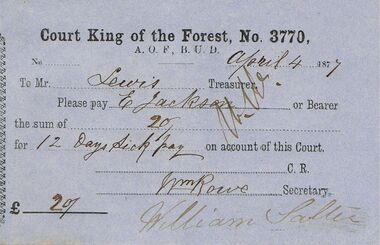 Court King of the Forest, No. 3770,
A. O. F., B. U. D.
No April 4 1877
To Mr. Lewis Treasurer,
Please pay E Jackson or Bearer
the sum of 20/
for 12 Days Sick pay on account of this Court.
C. R.
Wm Rowe Secretary.
£ 20/
William Salter